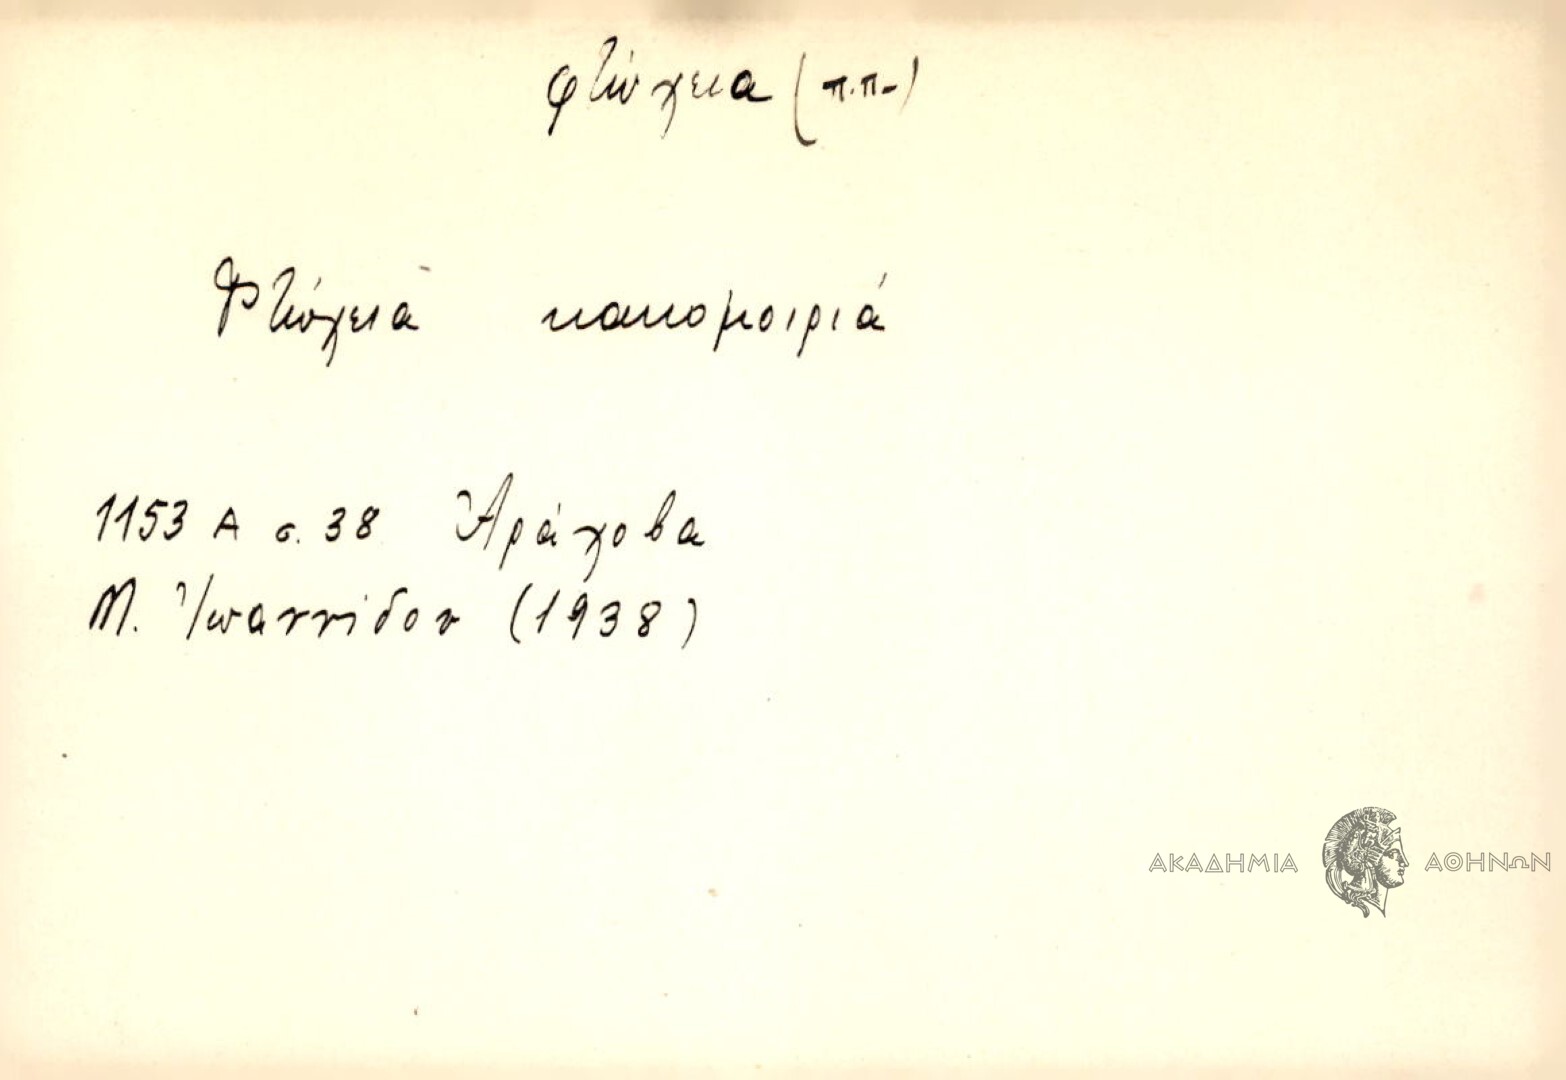 φτώχεια (π.π.)
Φτώχεια κακομοιριά
1153 Α σ. 38 Ἀράχοβα
Μ. Ἰωαννίδου (1938)
ΑΚΑΔΗΜΙΑ ΑΘΗΝΩΝ